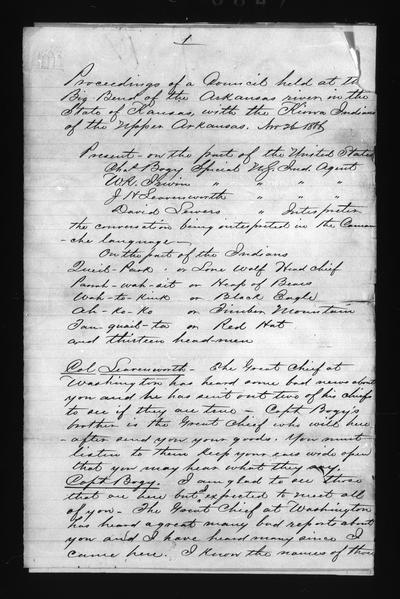 1
Proceedings of a Council held at the
Big Bend of the Arkansas river in the
State of Kansas, with the Kiowa Indians
of the Upper Arkansas. Nov 26 1866
Present - on the part of the United States
Chas Bogy Special U.S. Ind. Agent
W.R. Irwin " " " "
J H Leavenworth " "
David Sewers " Interpreter
the conversation being interpreted in the Coman
- che language -
On the part of the Indians
Queil-Park - or Lone Wolf Head chief
Parah-wah-sit or Heap of Bears
Wah-to-kunk or Black Eagle
Ah-ko-ko or Timber Mountain
Tan-quail-ta or Red Hat
and thirteen head men
Col Leavenworth - The Great Chief at
Washington has heard some bad news about
you and he has sent out two of his chiefs
to see if they are true - Capt Bogy's
brother is the Great Chief who will here
- after send you your goods. You must
listen to them keep your ears wide open
that you may hear what they say.
Capt Bogy. I am glad to see those
that are here but I expected to meet all
of you - The Great Chief at Washington
has heard a great many bad reports about
you and I have heard many since I
came here. I know the names of those